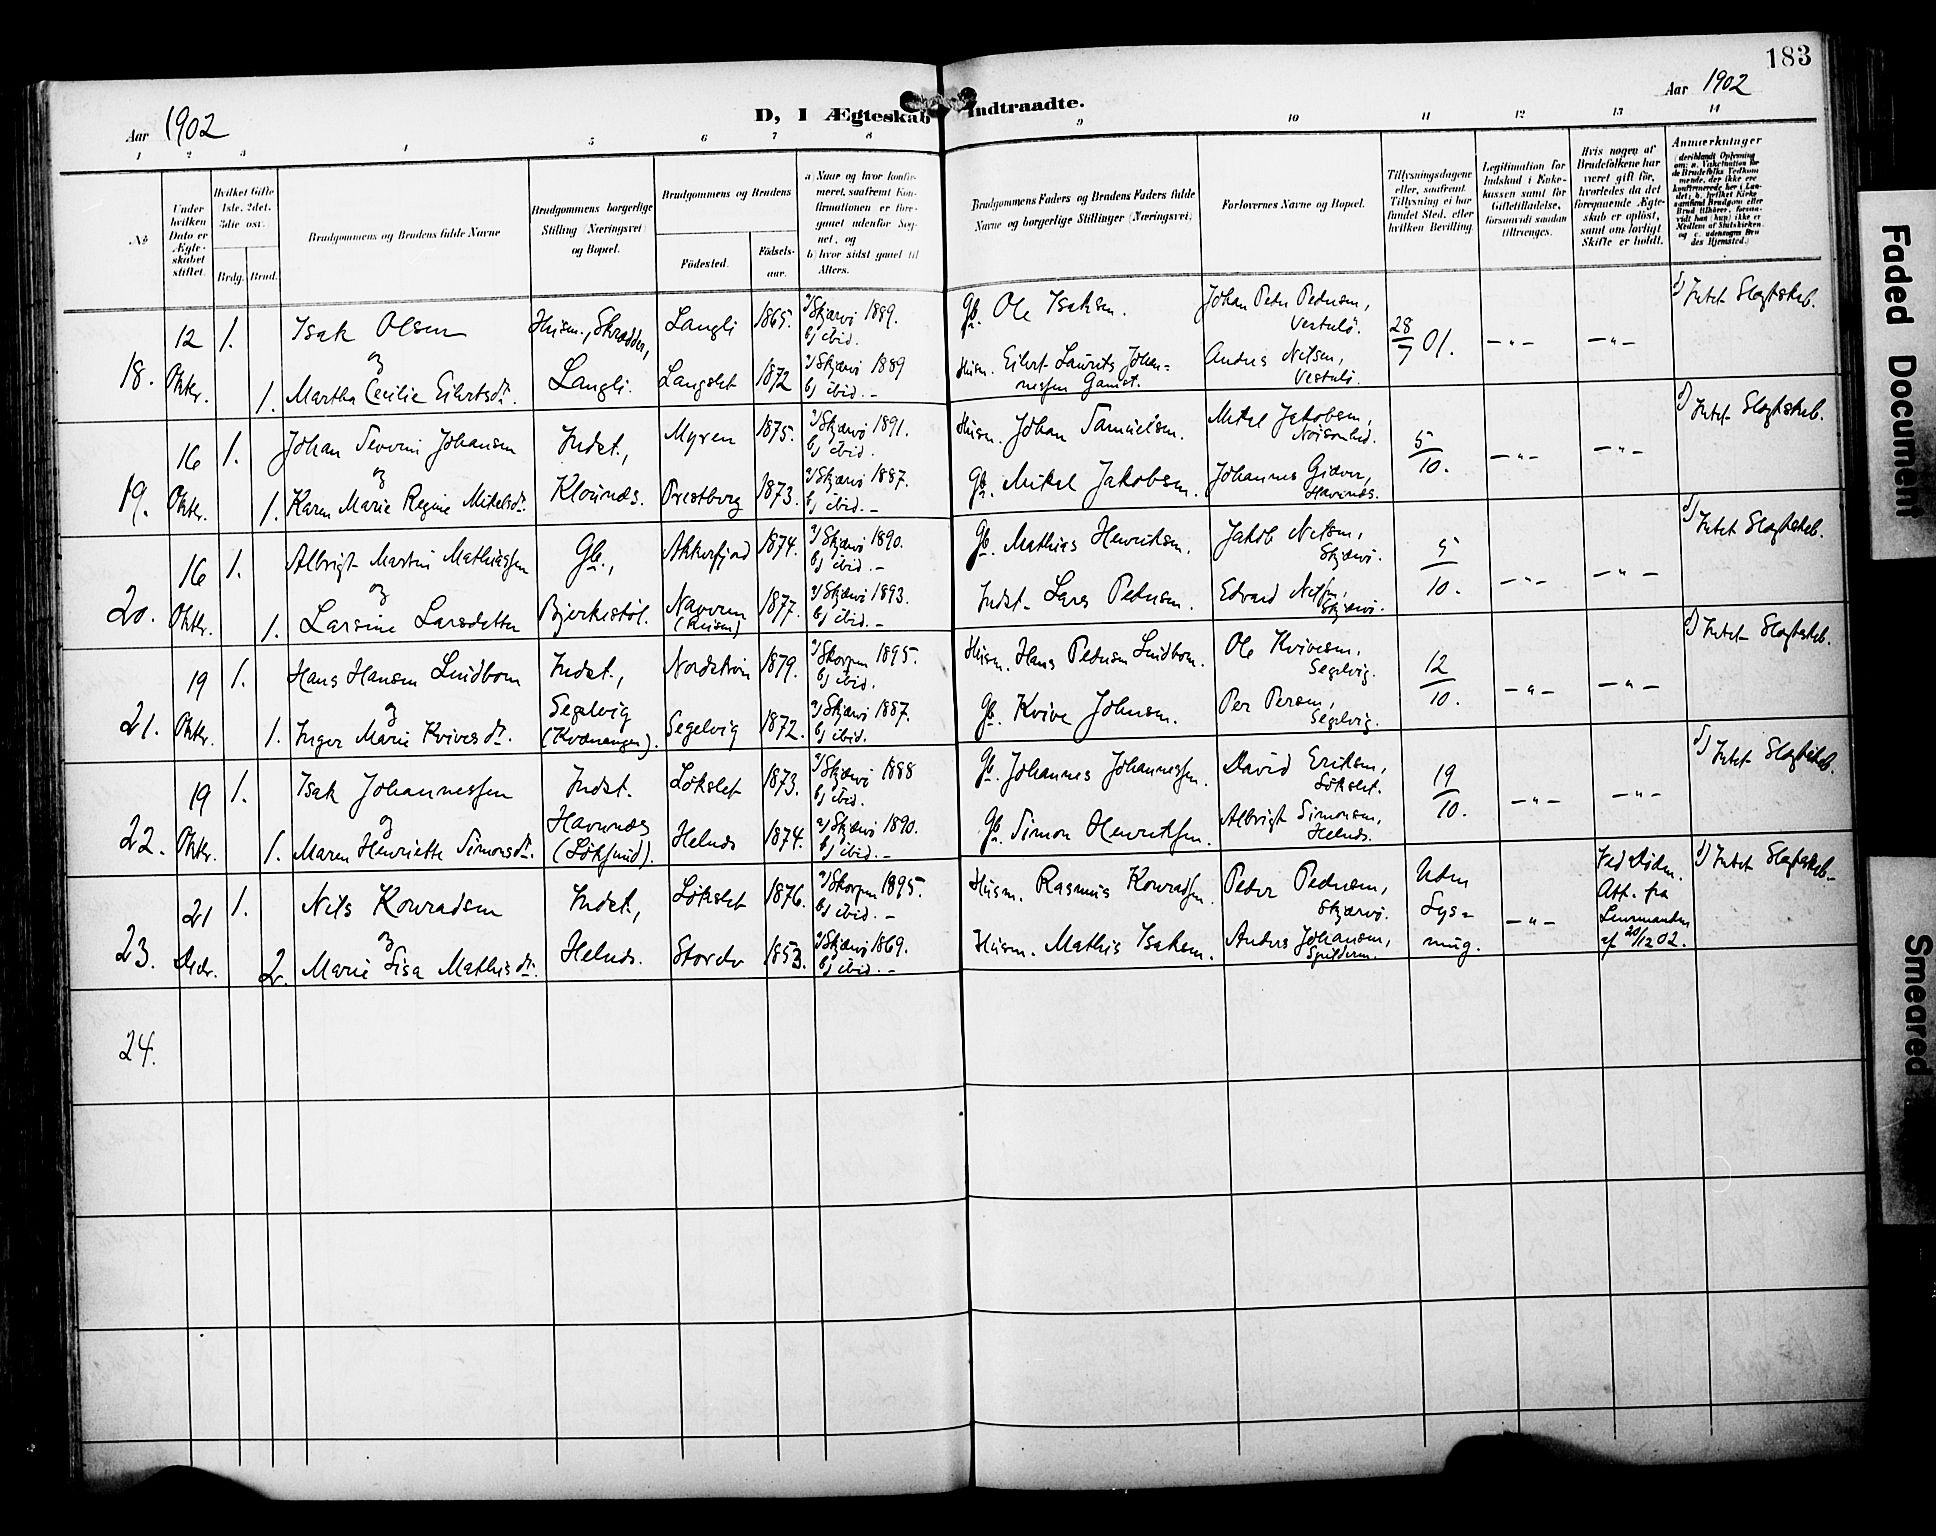 183
Aar 1902
D, I Ægteskab Indtraadte.
Aar 1902
1 2 3 4 5 6 7 8 9 10 11 12 13 14
No
Under hvilken Dato er Ægteskabet stiftet.
Hvilket Gifte 1ste, 2det, 3die osv.
Brdg. Brud.
Brudgommens og Brudens fulde Navne
Brudgommens borgerlige Stilling (Næringsvei) og Bopæl.
Brudgommens og Brudens
Födested.
Födselsaar.
a) Naar og hvor konfirmeret, saafremt Konfirmationen er foregaaet udenfor Sognet, og
b) hvor sidst gaaet til Alters.
Brudgommens Faders og Brudens Faders fulde Navne og borgerlige Stillinger (Næringsvei)
Forlovernes Navne og Bopæl.
Tillysningsdagene eller, saafremt Tillysning ei har fundet Sted, efter hvilken Bevilling.
Legitimation for Indskud i Enkekassen samt for Giftetilladelse, forsaavidt saadan tiltrænges.
Hvis nogen af Brudefolkene har været gift før, hvorledes da det foregaaende Ægteskab er opløst, samt om lovligt Skifte er holdt.
Anmærkninger
18. 12 Oktbr. 1. 1.
Isak Olsen
og
Martha Cecilie Eilertsdt.
Husm., Skrædder,
Langli.
Langli 1865. a) Skjærvö 1889. b) ibid.
Langslet 1872 a) Skjærvö 1889 b) ibid. –
Gb. Ole Isaksen.
Husm. Eilert Laurits Johannessen Gamst.
Johan Peter Pedersen,
Anders Nilsen,
28/7 01. –"– –"–
Intet Slægtskab.
19. 16 Oktbr. 1. 1.
Johan Severin Johansen
og
Karen Marie Regine Mikelsdt.
Indst.,
Klounæs.
Myren 1875. a) Skjærvö 1891. b) ibid.
Prestberg 1873. a) Skjærvö 1887. b) ibid. –
Husm. Johan Samuelsen.
Gb. Mikal Jakobsen.
Mikal Jakobsen,
Johannes Giæver, Havnnæs.
5/10. –"– –"–
Intet Slægtskab.
20. 16 Oktbr. 1. 1.
Albrigt Martin Mathiassen
og
Larsine Larsdatter
Gb.,
Bjerkestöl.
Akkarfjord 1874. a) Skjærvö 1890. b) ibid. –
Navaren (Reisen) 1877. a) Skjærvö 1893. b) ibid. –
Gb. Mathias Henriksen.
Indst. Lars Pedersen.
Jakob Nilsen, Skjærvö.
Edvard Nilsen, Skjærvö.
5/10. –"– –"–
Intet Slægtskab.
21. 19 Oktbr. 1. 1.
Hans Hansen Lindbom
og
Inger Marie Kvivesdt.
Indst.,
Segelvig
(Kvænangen).
Nordströn 1879. a) Skorpen 1895. b) ibid.
Segelvig 1872. a) Skjærvö 1887. b) ibid.
Husm. Hans Pedersen Lindbom.
Gb. Kvive Johnsen.
Ole Kvivesen, Segelvig.
Per Persen, Segelvig.
12/10. –"– –"–
Intet Slægtskab.
22. 19 Oktbr. 1. 1.
Isak Johannessen
og
Maren Henriette Simonsdt.
Indst.
Havnnæs
(Löksund).
Lökslet 1873. a) Skjærvö 1888 b) ibid.
Helnæs 1874. a) Skjærvö 1890. b) ibid. –
Gb. Johannes Johannessen.
Gb. Simon Henriksen.
David Eriksen, Lökslet.
Albrigt Simonsen, Helnæs.
19/10. –"– –"–
Intet Slægtskab.
23. 21 Decbr. 1. 2.
Nils Konradsen
og
Marie Lisa Mathisdt.
Indst.,
Helnæs.
Lökslet 1876. a) Skorpen 1895. b) ibid. –
1853. a) Skjærvö 1869. b) ibid. –
Husm. Rasmus Konradsen.
Husm. Mathis Isaksen.
Peder Pedersen, Skjærvö.
Anders Johansen, Spilderen.
Uden Lysning. –"–
Ved Döden. Att. fra Lensmanden af 20/12 02.
Intet Slægtskab. –
24.
Faded Document
Smeared